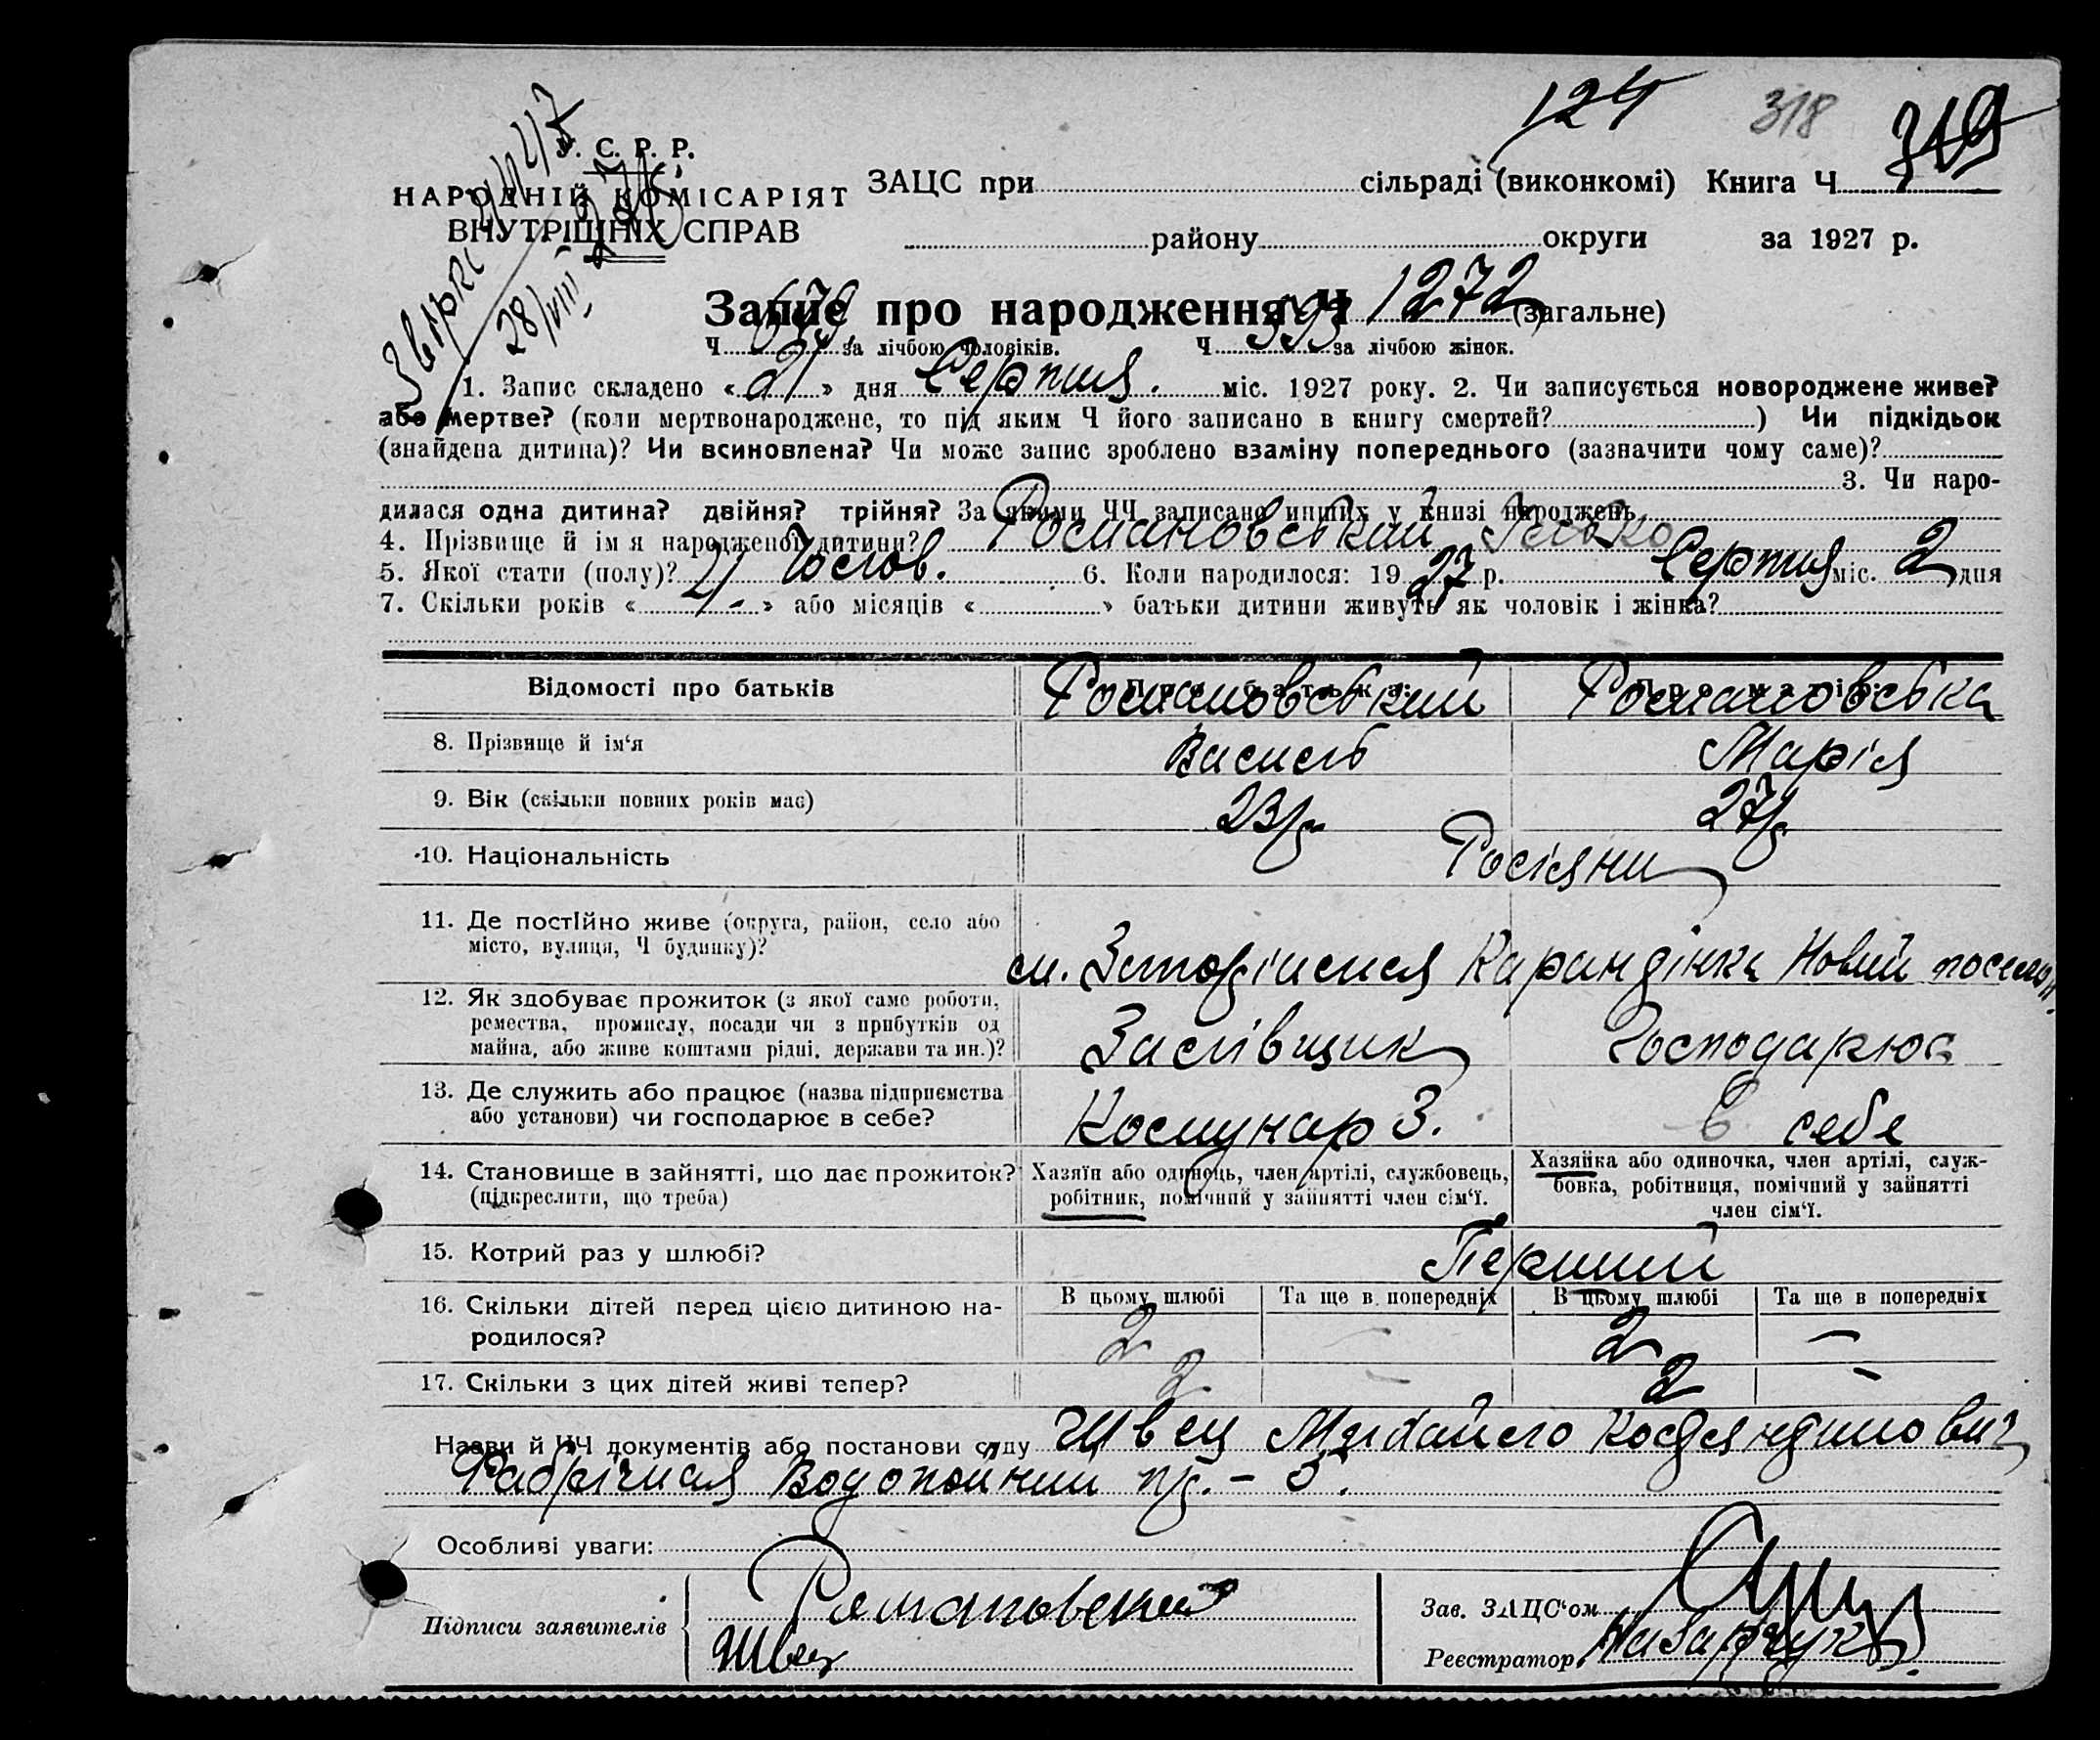 124 318 319
У. С. Р. Р.
НАРОДНІЙ КОМІСАРІЯТ
ВНУТРІШНІХ СПРАВ
ЗАЦС при сільраді (виконкомі) Книга Ч
району округи за 1927 р.
28/VIII
Запис про народження Ч 1272 (загальне)
Ч за лічбою чоловіків. Ч 593 за лічбою жінок.
1. Запис складено « 21 » дня Серпня. міс. 1927 року. 2. Чи записується новороджене живе?
або мертве? (коли мертвонароджене, то під яким Ч його записано в книгу смертей? ) Чи підкідьок
(знайдена дитина)? Чи всиновлена? Чи може запис зроблено взаміну попереднього (зазначити чому саме)?
3. Чи наро-
дилася одна дитина? двійня? трійня? За якими ЧЧ записано инших у книзі народжень
4. Прізвище й ім'я народженої дитини? Романовський
5. Якої стати (полу)? Чолов. 6. Коли народилося: 1927 р. Серпня міс. 2 дня
7. Скільки років « » або місяців « » батьки дитини живуть як чоловік і жінка?
Відомості про батьків
8. Прізвище й ім'я Романовський Василь Романовська Марія
9. Вік (скільки повних років має) 23/р 27/р
10. Національність Росіяни
11. Де постійно живе (округа, район, село або
місто, вулиця, Ч будинку)? м. Запоріжжя Карантінка Новий посьолок
12. Як здобуває прожиток (з якої саме роботи,
ремества, промислу, посади чи з прибутків од
майна, або живе коштами рідні, держави та ин.)? Господарює
13. Де служить або працює (назва підприємства
або установи) чи господарює в себе? Комунар З. в себе
14. Становище в зайнятті, що дає прожиток?
(підкреслити, що треба)
Хазяїн або одинець, член артілі, службовець,
робітник, помічний у зайнятті член сім'ї.
Хазяйка або одиночка, член артілі, служ-
бовка, робітниця, помічний у зайнятті
член сім'ї.
15. Котрий раз у шлюбі? Перший
16. Скільки дітей перед цією дитиною на-
родилося?
В цьому шлюбі Та ще в попередніх В цьому шлюбі Та ще в попередніх
2 – 2 –
17. Скільки з цих дітей живі тепер? 2 – 2 –
Назви й ЧЧ документів або постанови суду Швец Михайло
Фабрічная Водопойний пр. – 5.
Особливі уваги:
Підписи заявителів Романовский
Швец
Зав. ЗАЦС'ом
Реєстратор Назарчук